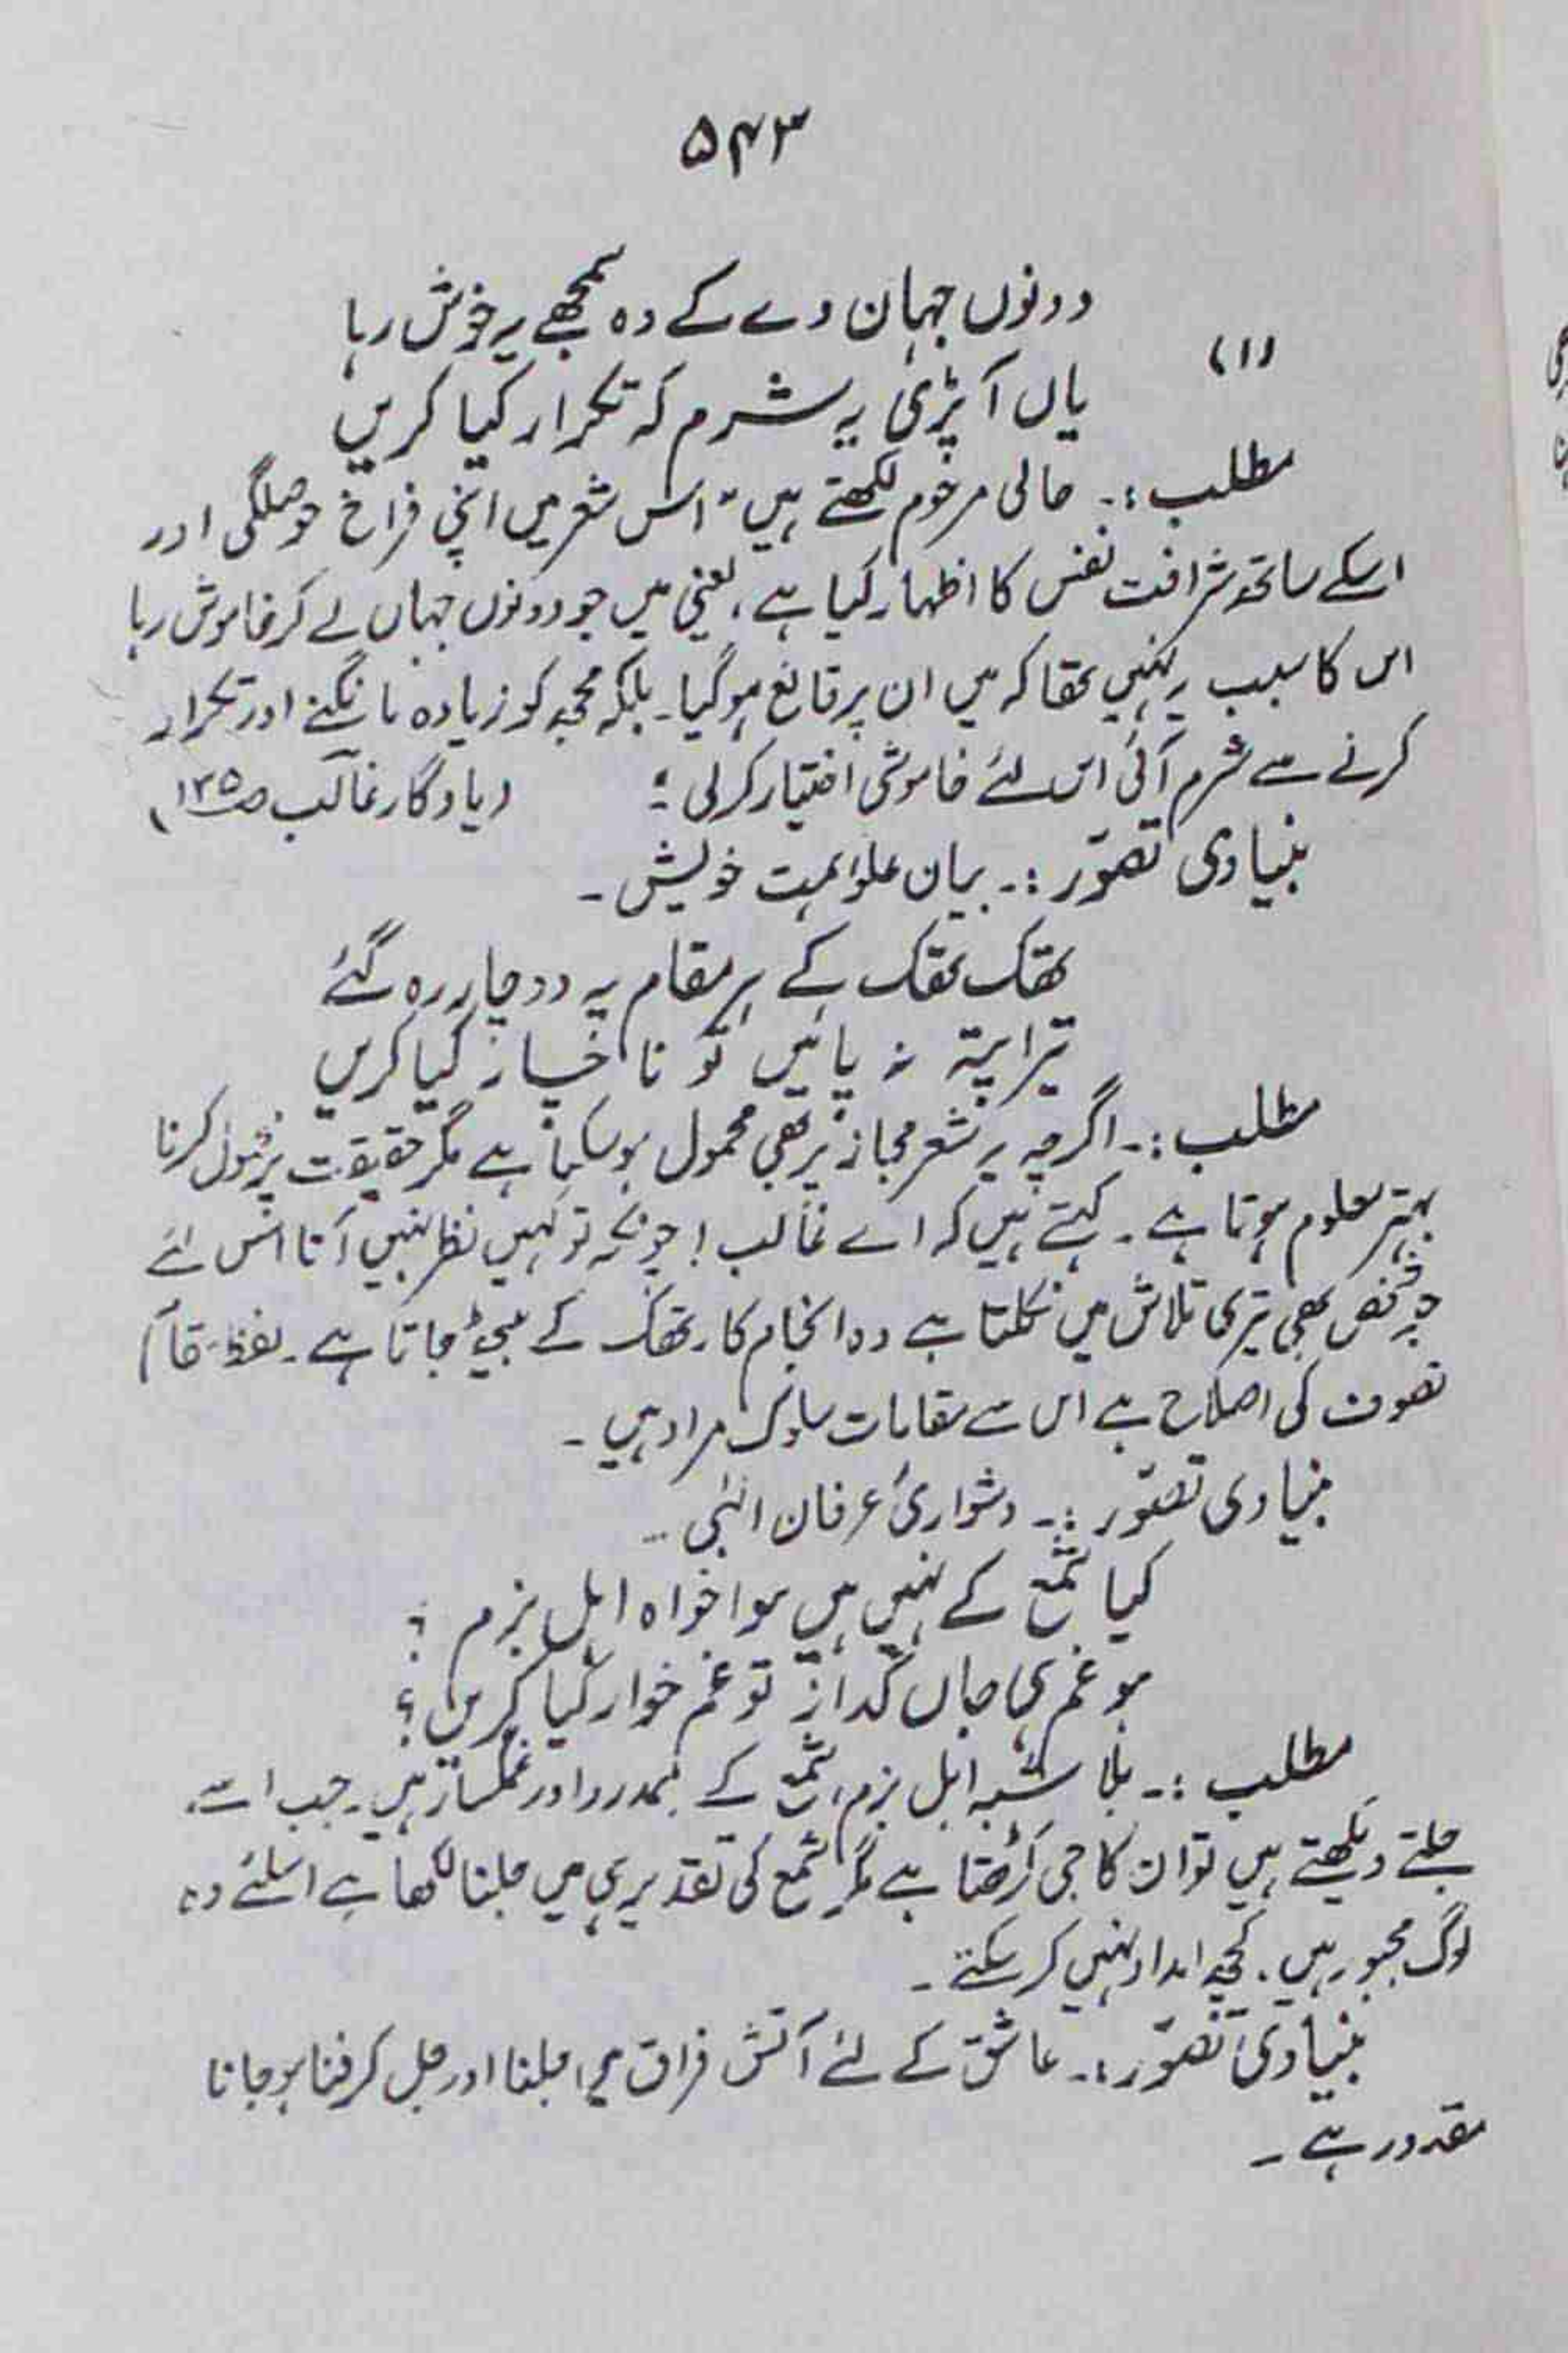 ۵۴۳
دونوں جہان دے کے وہ سمجھے یہ خوش رہا
(۱)
یاں آ پڑی یہ شرم کہ تکرار کیا کریں
مطلب :۔ حالی مرحوم لکھتے ہیں " اس شعر میں اپنی فراخ حوصلگی اور
اسکے ساتھ شرافت نفس کا اظہار کیا ہے، یعنی میں جو دونوں جہاں لے کر خاموش رہا
اس کا سبب یہ نہیں تھا کہ میں ان پر قانع ہو گیا۔ بلکہ مجھ کو زیادہ مانگنے اور تکرار
کرنے سے شرم آئی اس لئے خاموشی اختیار کر لی " (یادگار غالب ص ۱۲۵)
بنیادی تصوّر :۔ بیان علو ہمت خویش ۔
تھک تھک کے ہر مقام پہ دو چار رہ گئے
تیرا پتہ نہ پائیں تو ناچار کیا کریں
مطلب :۔ اگرچہ یہ شعر مجاز پر بھی محمول ہو سکتا ہے مگر حقیقت پر محمول کرنا
بہتر معلوم ہوتا ہے ۔ کہتے ہیں کہ اے غالب ! چونکہ تو کہیں نظر نہیں آتا اس لئے
جو شخص بھی تیری تلاش میں نکلتا ہے وہ انجام کار تھک کے بیٹھ جاتا ہے ۔ لفظ مقام
تصوف کی اصطلاح ہے اس سے مقامات سلوک مراد ہیں ۔
بنیادی تصوّر :۔ دشواریٔ عرفان الٰہی ۔
کیا شمع کے نہیں ہیں ہوا خواہ اہل بزم ؟
ہو غم ہی جاں گداز تو غم خوار کیا کریں ؟
مطلب :۔ بلا شبہ اہل بزم، شمع کے ہمدرد اور غمگسار ہیں ۔ جب اسے
جلتے دیکھتے ہیں تو ان کا جی کڑھتا ہے مگر شمع کی تقدیر ہی میں جلنا لکھا ہے اسلئے وہ
لوگ مجبور ہیں . کچھ امداد نہیں کر سکتے ۔
بنیادی تصوّر :۔ عاشق کے لئے آتش فراق میں جلنا اور جل کر فنا ہو جانا
مقدور ہے ۔